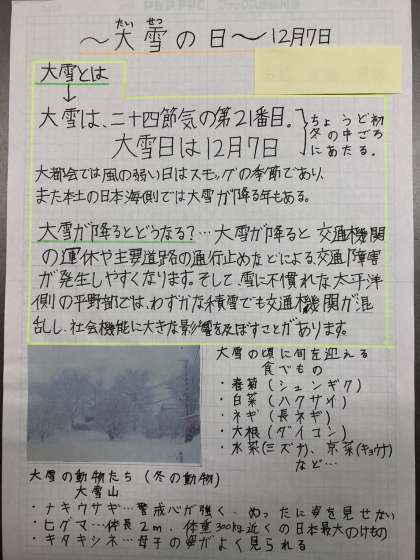 ～大雪の日～12月7日
たい せつ
大雪とは
↓
大雪は、二十四節気の第21番目。
大雪日は12月7日
ちょうど初
冬の中ごろ
にあたる。
大都会では風の弱い日はスモッグの季節であり、
また本土の日本海側では大雪が降る年もある。
大雪が降るとどうなる?…大雪が降ると交通機関
の運休や主要道路の通行止めなどによる、交通障害
が発生しやすくなります。そして、雪に不慣れな太平洋
側の平野部では、わずかな積雪でも交通機関が混
乱し、社会機能に大きな影響を及ぼすことがあります。
大雪の頃に旬を迎える
食べもの
・春菊(シュンギク)
・白菜(ハクサイ)
・ネギ(長ネギ)
・大根(ダイコン)
・水菜(ミズナ)、京菜(キョウナ)
など…
大雪の動物たち(冬の動物)
大雪山
・ナキウサギ…警戒心が強く、めったに姿を見せない
・ヒグマ…体長2m、体重300kg近くの日本最大のけもの
・キタキツネ…母子の姿がよく見られる